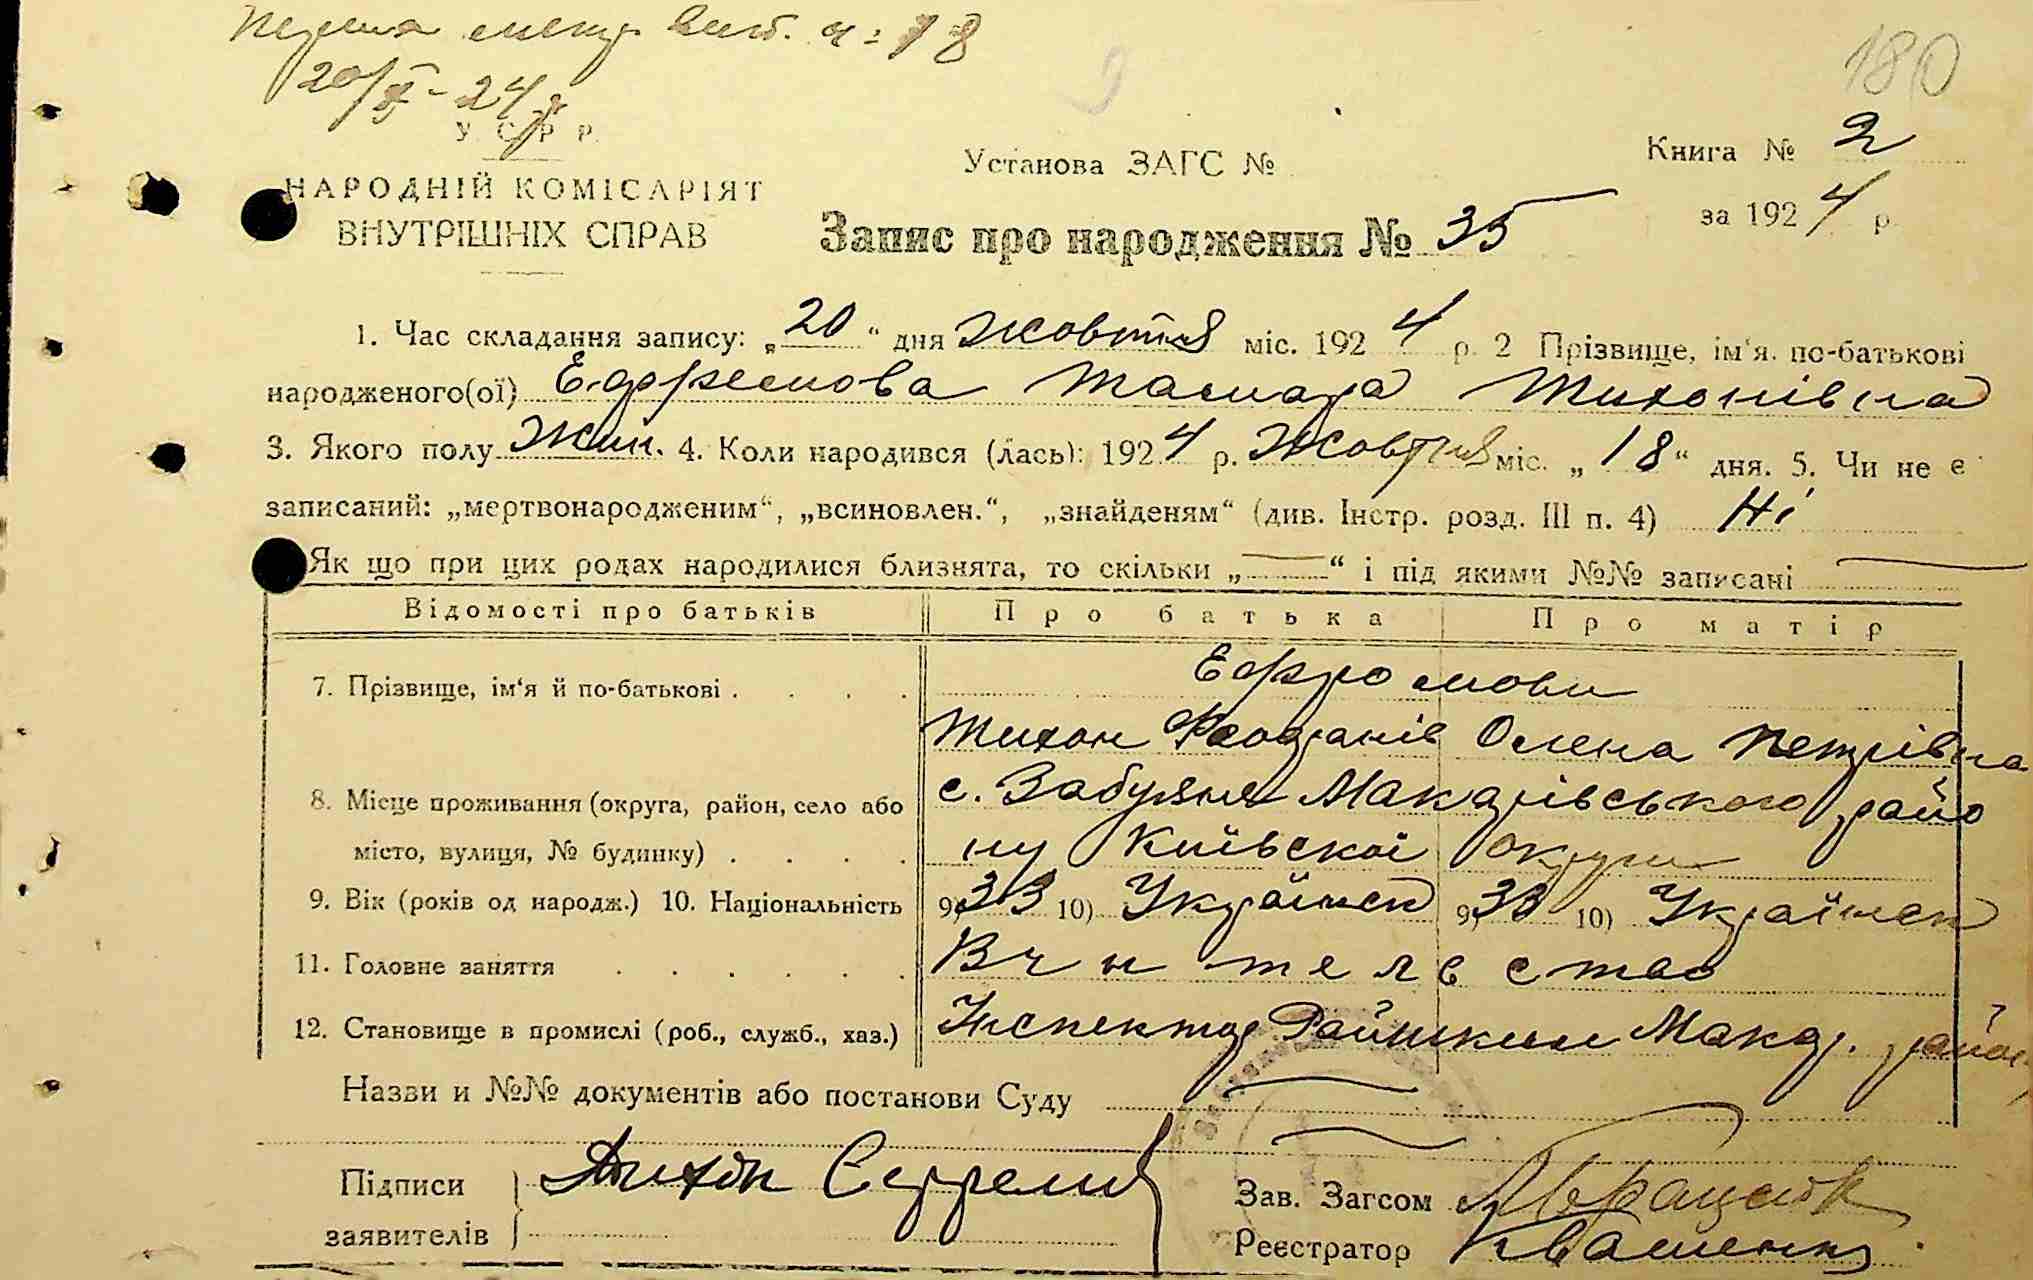 180
20/X - 24 р
У С Р Р
Установа ЗАГС №
Книга № 2
НАРОДНІЙ КОМІСАРІЯТ
за 1924 р.
ВНУТРІШНІХ СПРАВ
Запис про народження № 35
1. Час складання запису: „20“ дня Жовтня міс. 1924 р. 2 Прізвище, ім'я. по-батькові
народженого(ої) Ефремова Тамара Тихонівна
3. Якого полу Жін. 4. Коли народився (лась): 1924 р. Жовтня міс. „18“ дня. 5. Чи не є
записаний: „мертвонародженим“, „всиновлен.“, „знайденям“ (див. Інстр. розд. III п. 4) Ні
Як що при цих родах народилися близнята, то скільки „—“ і під якими №№ записані —
Відомості про батьків Про батька Про матір
7. Прізвище, ім'я й по-батькові . . . . Ефремови
Тихон Олена Петрівна
8. Місце проживання (округа, район, село або с. Забуяня Макарівського райо
місто, вулиця, № будинку) . . . . ну Київскої округи
9. Вік (років од народж.) 10. Національність 9) 33 10) Українск 9) 33 10) Українск
11. Головне заняття . . . . . . Вчительство
12. Становище в промислі (роб., служб., хаз.) Інспектор Макар. району
Назви и №№ документів або постанови Суду —
Підписи Тихон Єфремов
заявителів
Зав. Загсом
Реєстратор Квашенко